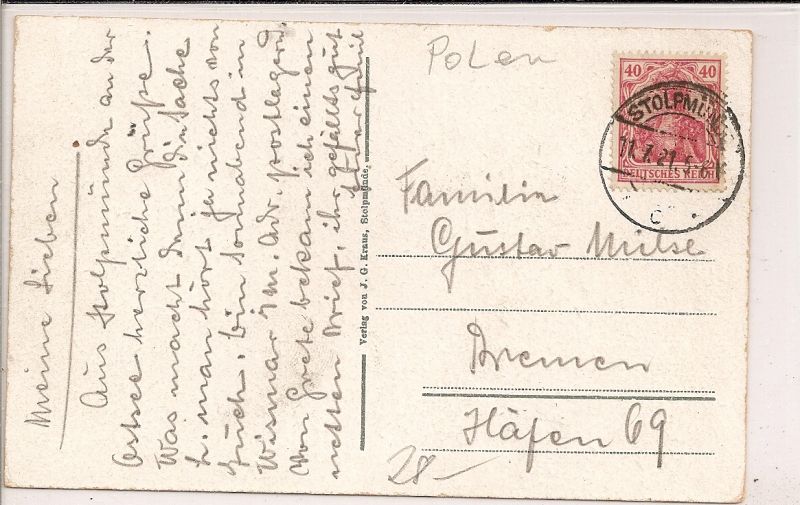 Meine Lieben
Aus Stolpmünde an der
Ostsee herzliche Grüße.
Was macht denn die Sache
man hört ja nichts von
Euch. bin Sonnabend in
Wismar m. Adr. postlagernd.
Von Grete bekam ich einen
netten Brief, ihr gefällts gut
Verlag von J. G. Kraus, Stolpmünde.
Polen
40 40
DEUTSCHES REICH
STOLPMÜNDE
11.7.21
c
Familie
Gustav Milse
Bremen
Häfen 69
28-